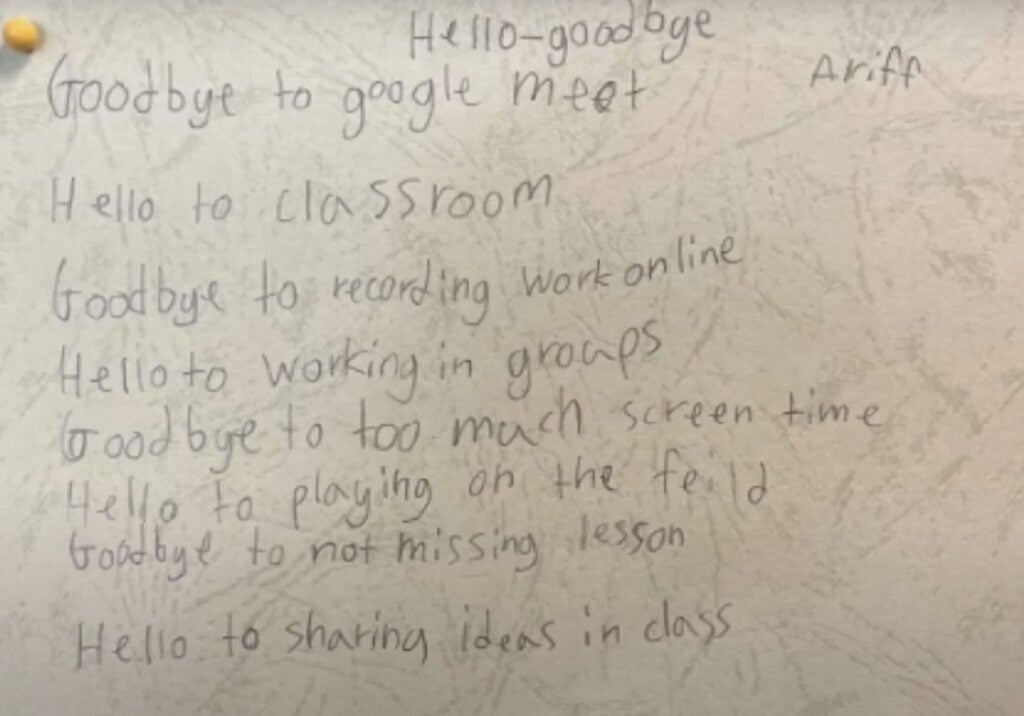 Hello-goodbye
Ariff
Goodbye to google meet
Hello to classroom
Goodbye to recording work online
Hello to working in groups
Goodbye to too much screen time
Hello to playing on the feild
Goodbye to not missing lesson
Hello to sharing ideas in class